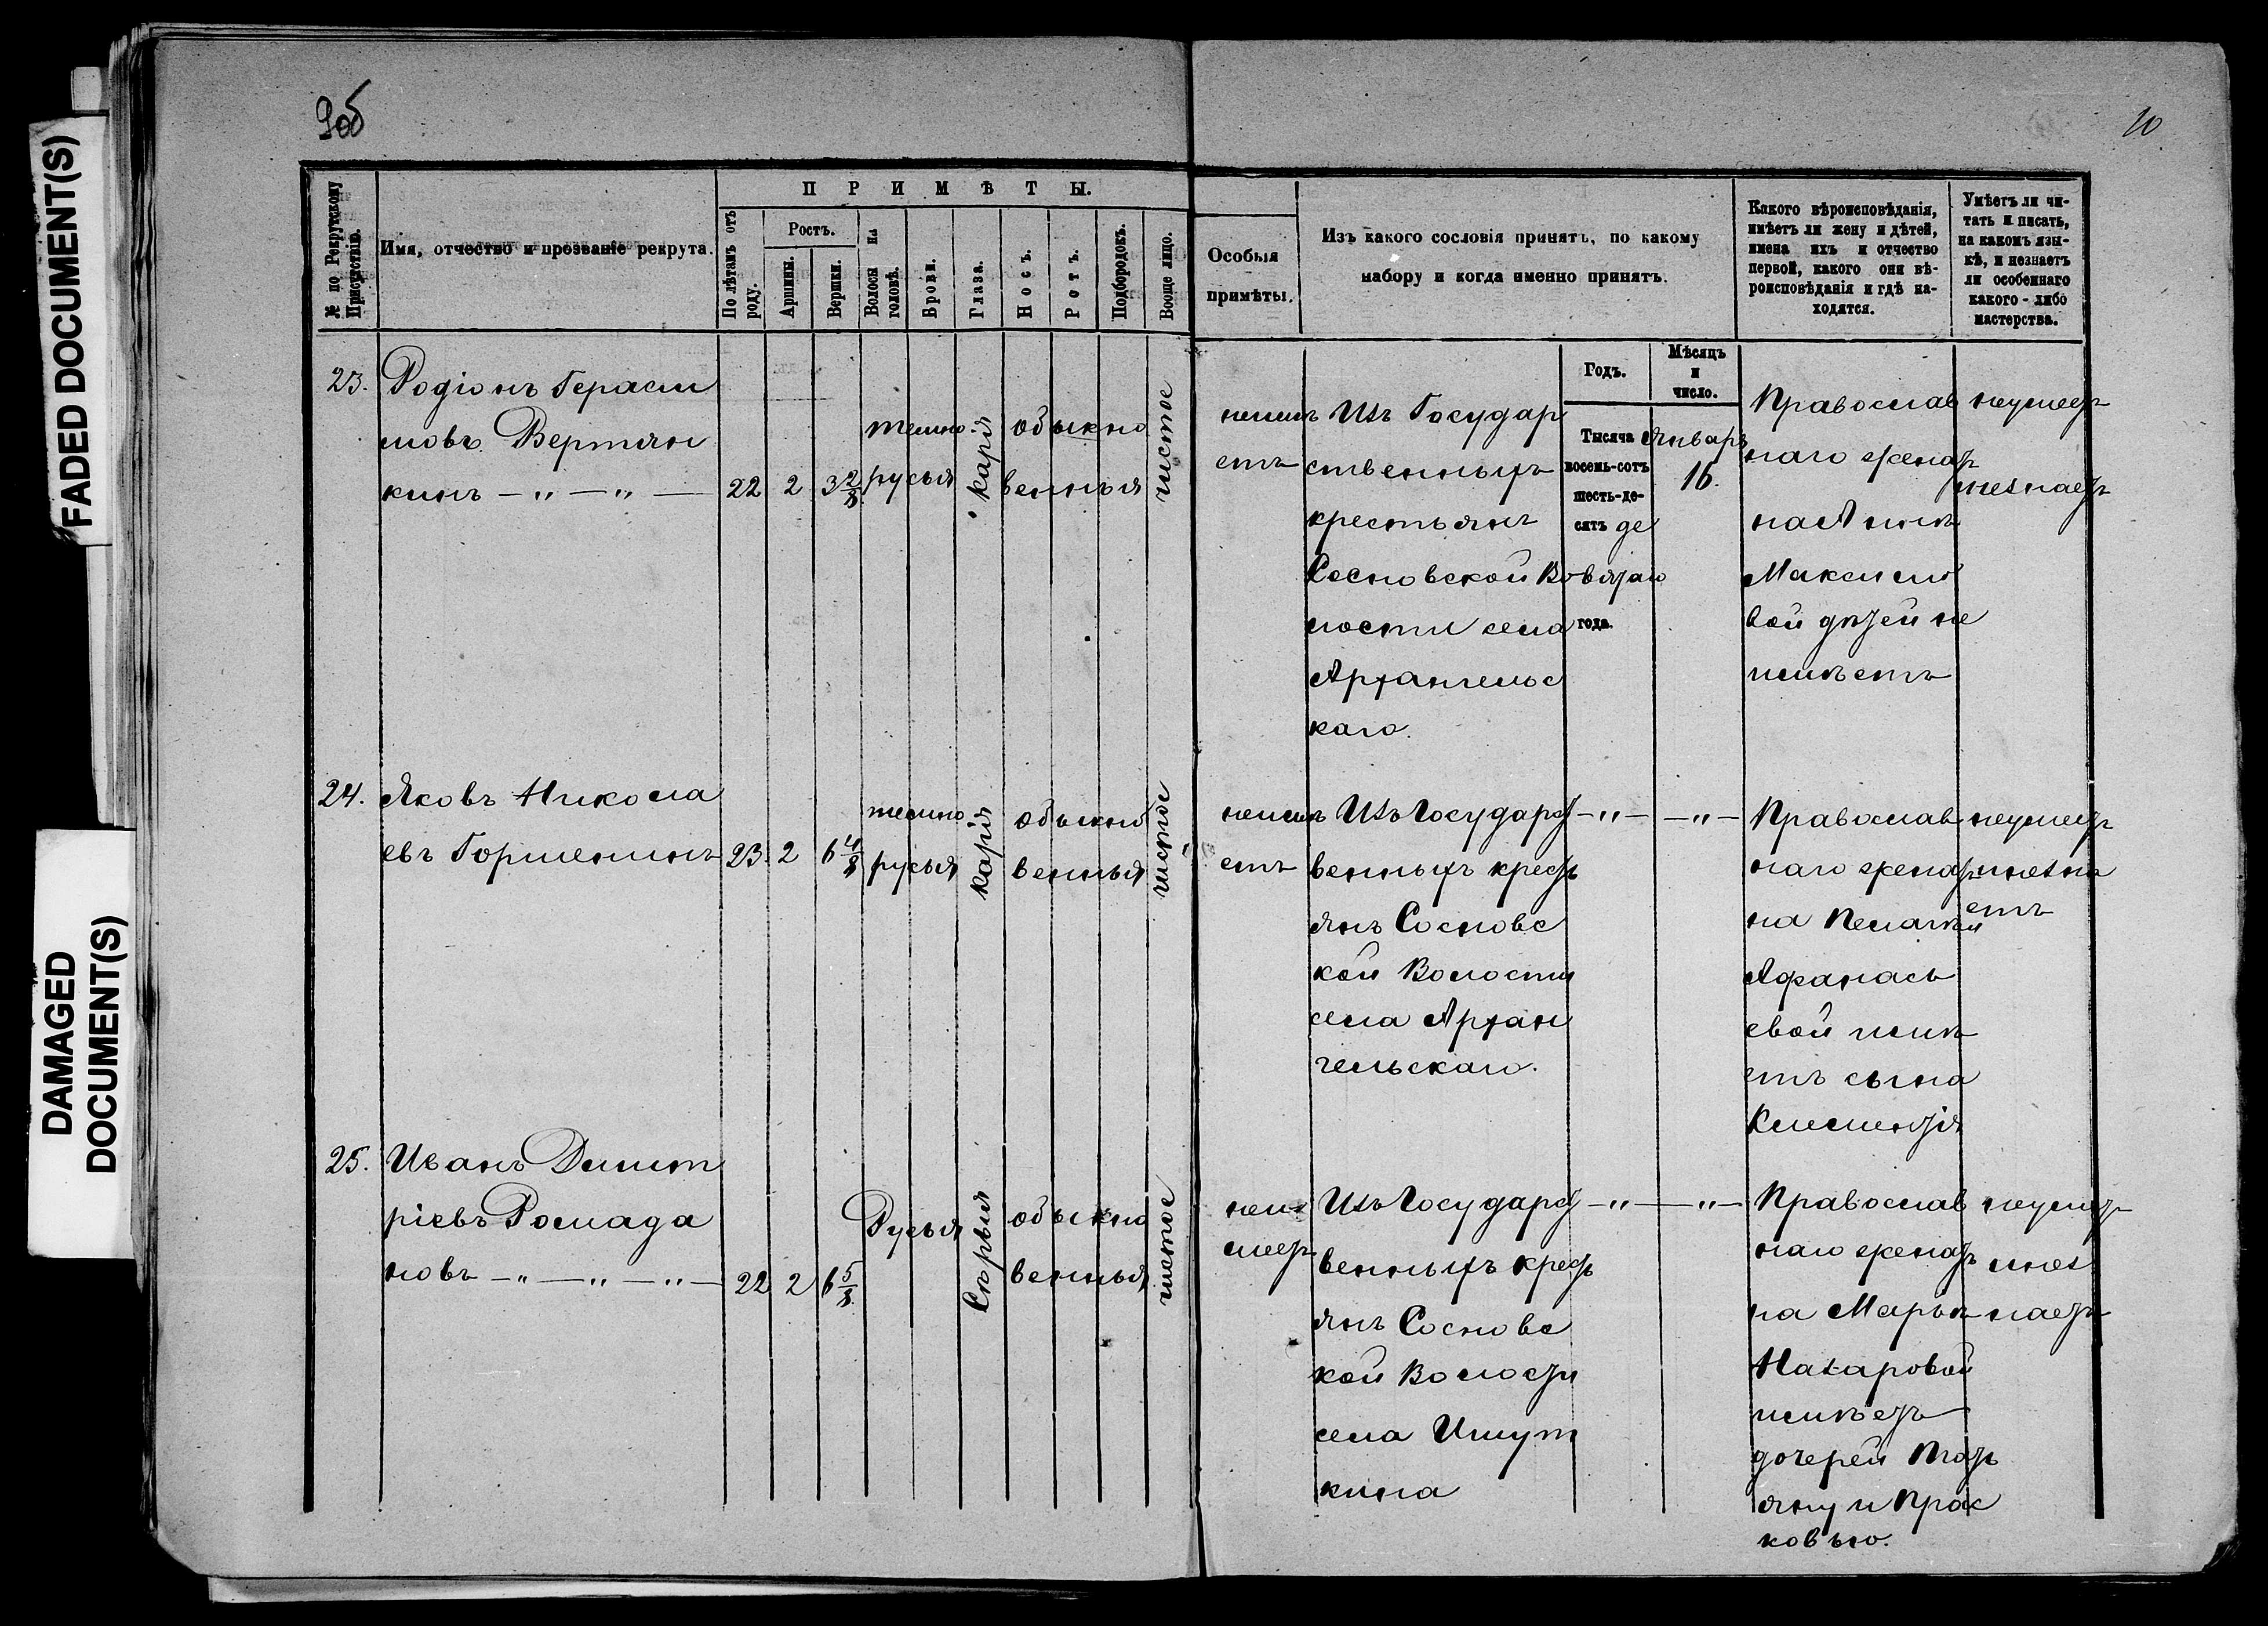 FADED DOCUMENT(S)
DAMAGED
DOCUMENT(S)
9об
10
№ по Рекрутскому
Присутствію.
Имя, отчество и прозваніе рекрута.
ПРИМѢТЫ.
По лѣтамъ отъ
роду.
Ростъ.
Аршины.
Вершки.
Волосы на
головѣ.
Брови.
Глаза.
Носъ.
Ротъ.
Подбородокъ.
Вооще лицо.
Особыя
примѣты.
Изъ какого сословія принятъ, по какому
набору и когда именно принятъ.
Какого вѣроисповѣданія,
имѣетъ ли жену и дѣтей,
имена ихъ и отчество
первой, какого они вѣ-
роисповѣданія и гдѣ на-
ходятся.
Умѣетъ ли чи-
тать и писать,
на какомъ язы-
кѣ, и незнаетъ
ли особеннаго
какого-либо
мастерства.
Годъ.
Мѣсяцъ
и
число.
23.
Родіонъ Герасим
мовъ Вертян
кинъ — „ — „ —
22
2
3 2/8
темно-
русыя
карія
обыкно
венныя
чистое
неим
етъ
Изъ Государ
ственныхъ
крестьянъ
Сосновской Во
лости села
Архангельс
каго.
Тысяча
восемь-сотъ
шесть-де-
сятъ де
вятаго
года.
Январь
16.
Православ
наго женат
на Аннѣ
Максимо
вой дѣтей не
имѣетъ
неумеетъ
и незнаетъ
24.
Яковъ Никола
евъ Горшенинъ
23.
2
6 4/8
темно-
русыя
карія
обыкно
венныя
чистое
неимѣ
етъ
Изъ Государст
венныхъ кресть
янъ Сосновс
кой Волости
села Архан
гельскаго.
— „ —
— „ —
Православ
наго женатъ
на Пелагѣи
Афанась
евой имѣ
етъ сына
Климентія
неумеетъ
и незна
етъ
25.
Иванъ Димит
ріевъ Ромада
новъ — „ — „ — „ —
22
2
6 5/8
Русыя
Сѣрыя
обыкно
венныя
чистое
неи
меетъ
Изъ Государст
венныхъ кресть
янъ Сосновс
кой Волости
села Ишут
кина
— „ —
— „ —
Православ
наго женатъ
на Марьѣ
Назаровой
имѣетъ
дочерей Тать
яну и Прас
ковью.
неумеетъ
и нез
наетъ